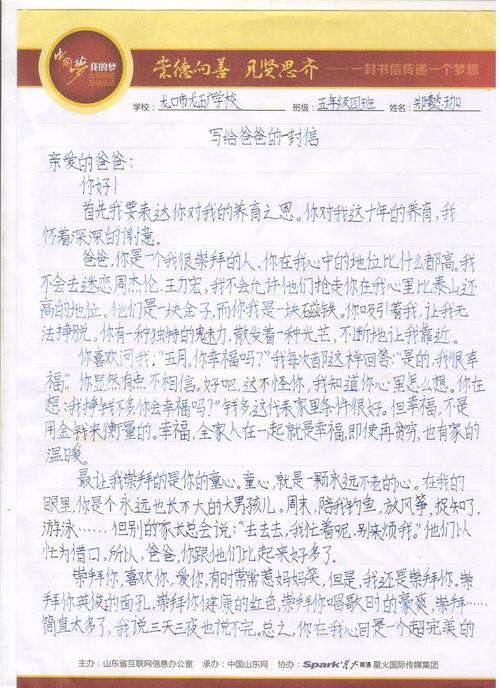 中国梦 我的梦
大型网络
互动活动
崇德向善 见贤思齐 ——一封书信传递一个梦想
学校:龙口市龙矿学校 班级:五年级四班 姓名:郑懿珈
写给爸爸的一封信
亲爱的爸爸:
你好!
首先我要表达你对我的养育之恩。你对我这十年的养育,我
怀着深深的谢意。
爸爸,你是一个我很崇拜的人,你在我心中的地位比什么都高。我
不会去迷恋周杰伦、王力宏,我不会允许他们抢走你在我心里比泰山还
高的地位。他们是一块金子,而你我是一块磁铁。你吸引着我,让我无
法挣脱。你有一种独特的魅力,散发着一种光芒,不断地让我靠近。
你喜欢问我:“五月,你幸福吗?”我每次都这样回答:“是的,我很幸
福。”你显然有点不相信。好吧,这不怪你,我知道你心里怎么想。你在
想:“我挣钱不多,你会幸福吗?”钱多,这代表家里条件很好。但幸福,不是
用金钱来衡量的。幸福,全家人在一起就是幸福,即使再贫穷,也有家的
温暖。
最让我崇拜的是你的童心。童心,就是一颗永远不老的心。在我的
眼里,你是个永远也长不大的大男孩儿。周末,陪我钓鱼,放风筝,捉知了,
游泳……但别的家长总会说:“去去去,我忙着呢,别来烦我。”他们以
忙为借口,所以,爸爸,你跟他们比起来好多了。
崇拜你,喜欢你,爱你,有时常常惹妈妈笑,但是,我还是崇拜你。崇
拜你英俊的面孔,崇拜你健康的红色,崇拜你唱歌时的豪爽,崇拜……
简直太多了,我说三天三夜也说不完。总之,你在我心目是一个超完美的
主办:山东省互联网信息办公室 承办:中国山东网 协办:Spark星火英语 星火国际传媒集团